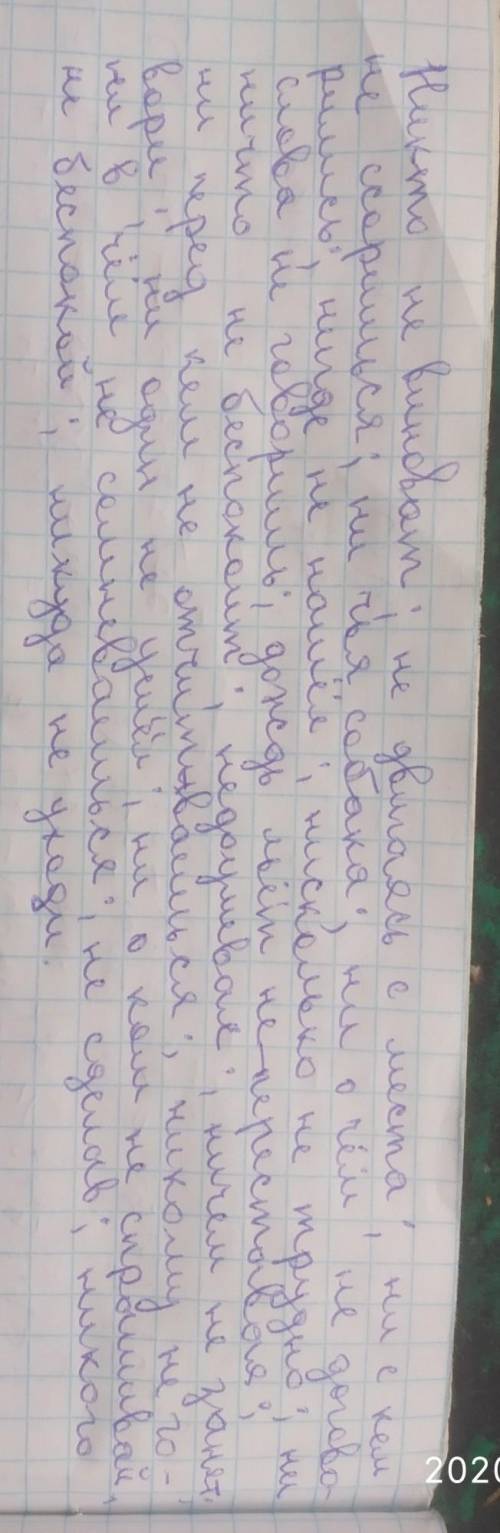 Никто не виноват; не двигаясь с места; ни с кем
не ссоришься; ни чья собака; ни о чём не догово-
рились; нигде не нашёл; нисколько не трудно; ни
слова не говоришь; дождь льёт не переставая;
ничто не беспокоит; недоумевая; ничем не занят;
ни перед кем не отчитываешься; никому не го-
вори; ни один не ушёл; ни о ком не спрашивай;
ни в чём не сомневаешься; не сделав; никого
не беспокой; никуда не уходи.
2020